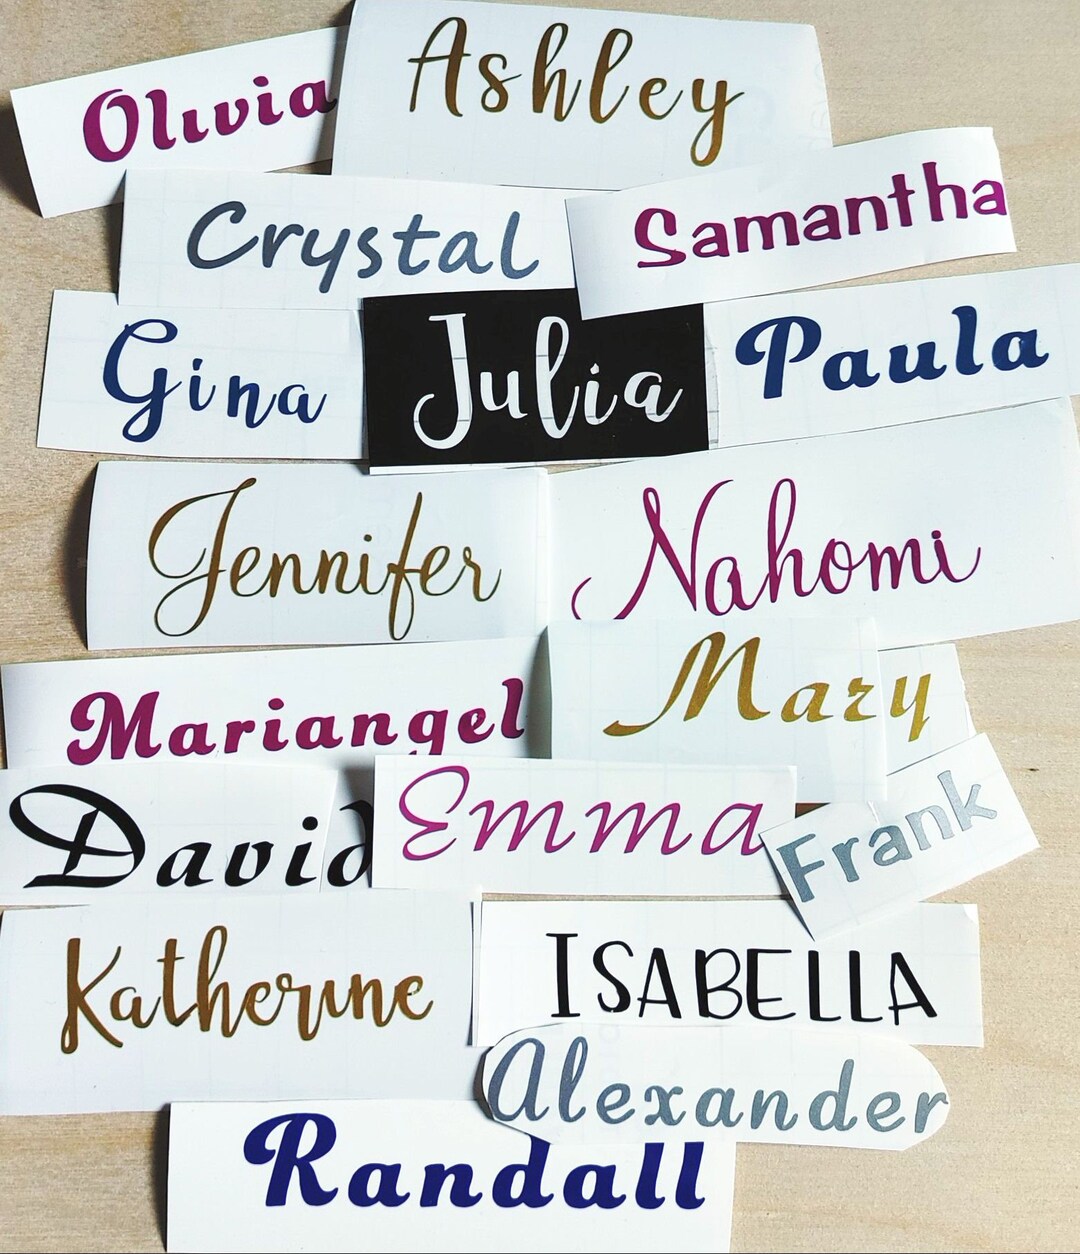 Olivia
Ashley
Crystal
Samantha
Gina
Julia
Paula
Jennifer
Nahomi
Mariangel
Mary
David
Emma
Frank
Katherine
ISABELLA
Alexander
Randall